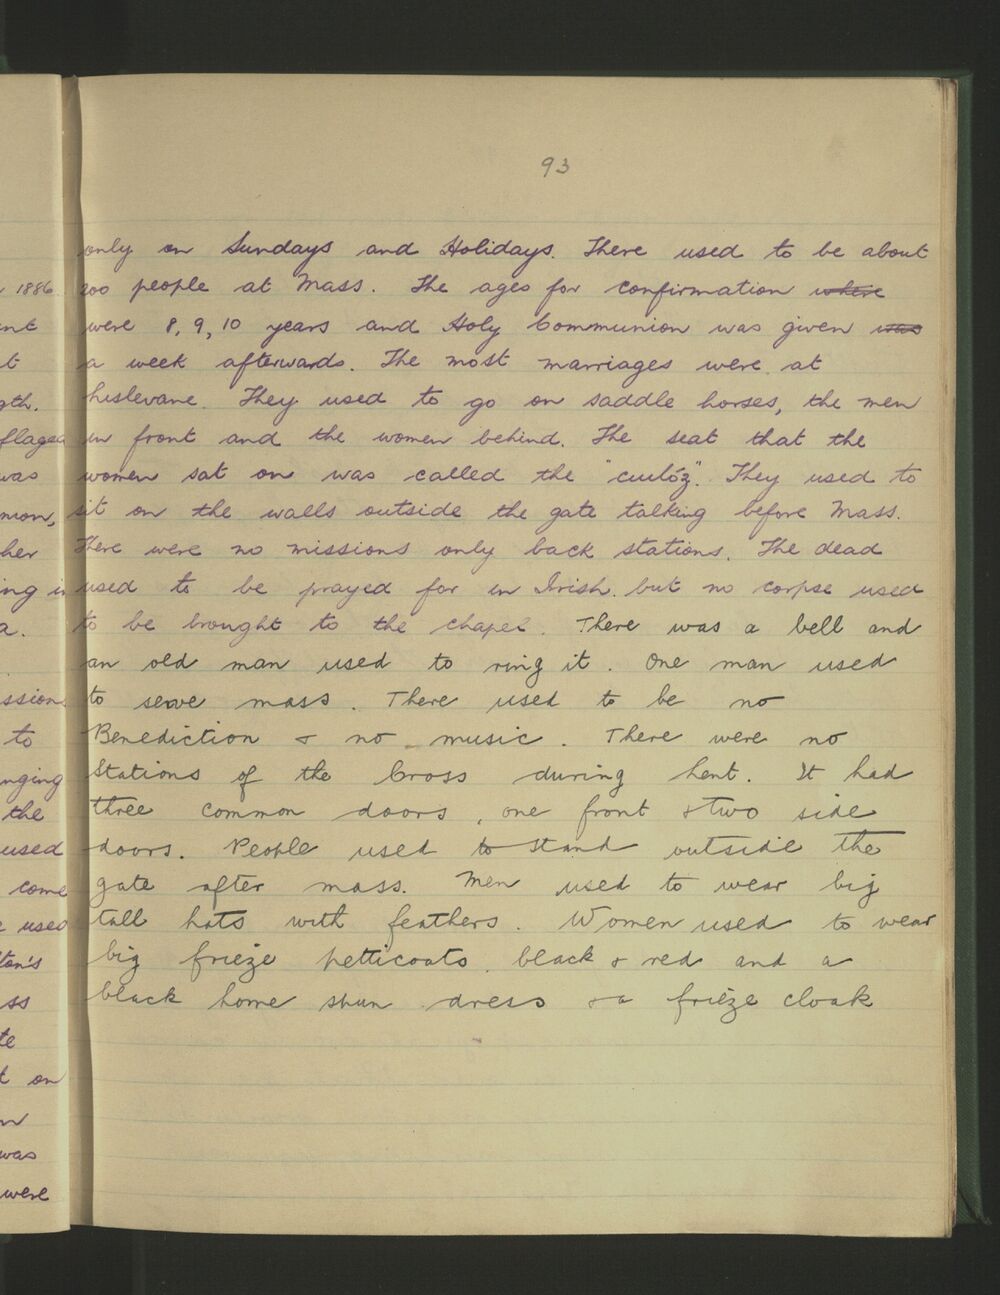 93
only on Sundays and Holidays. There used to be about
200 people at Mass. The ages for confirmation where
were 8, 9, 10 years and Holy Communion was given was
a week afterwards. The most marriages were at
They used to go on saddle horses, the men
in front and the women behind. The seat that the
women sat on was called the "cúlóg". They used to
sit on the walls outside the gate talking before Mass.
There were no missions only back stations. The dead
used to be prayed for in Irish. but no corpse used
to be brought to the chapel. There was a bell and
an old man used to ring it. One man used
to serve mass. There used to be no
Benediction & no music. There were no
Stations of the Cross during Lent. It had
three common doors, one front & two side
doors. People used to stand outside the
gate after mass. Men used to wear big
tall hats with feathers. Women used to wear
big frieze petticoats. black & red and a
black home spun dress & a frieze cloak
1886
gth.
flagged
was
her
ing in
a.
to
nging
the
used
come
used
ton's
ss
te
t on
was
were